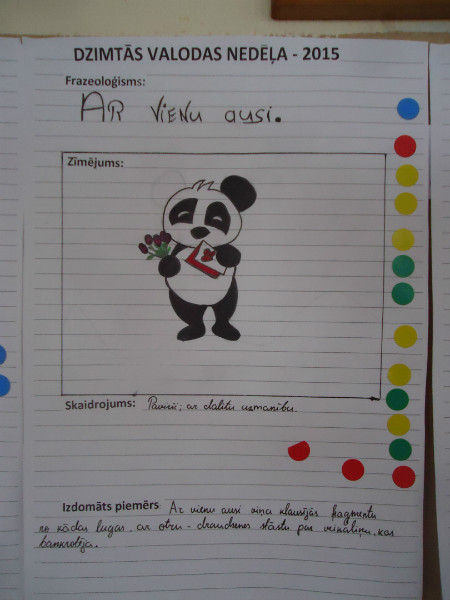 DZIMTĀS VALODAS NEDĒĻA - 2015
Frazeoloģisms:
AR VIENU ausi.
Zīmējums:
Skaidrojums: Pavirši; ar dalītu uzmanību.
Izdomāts piemērs Ar vienu ausi viņa klausījās fragmentu
no kādas lugas, ar otru - draudzenes stāstu par veikaliņu, kas
bankrotēja.